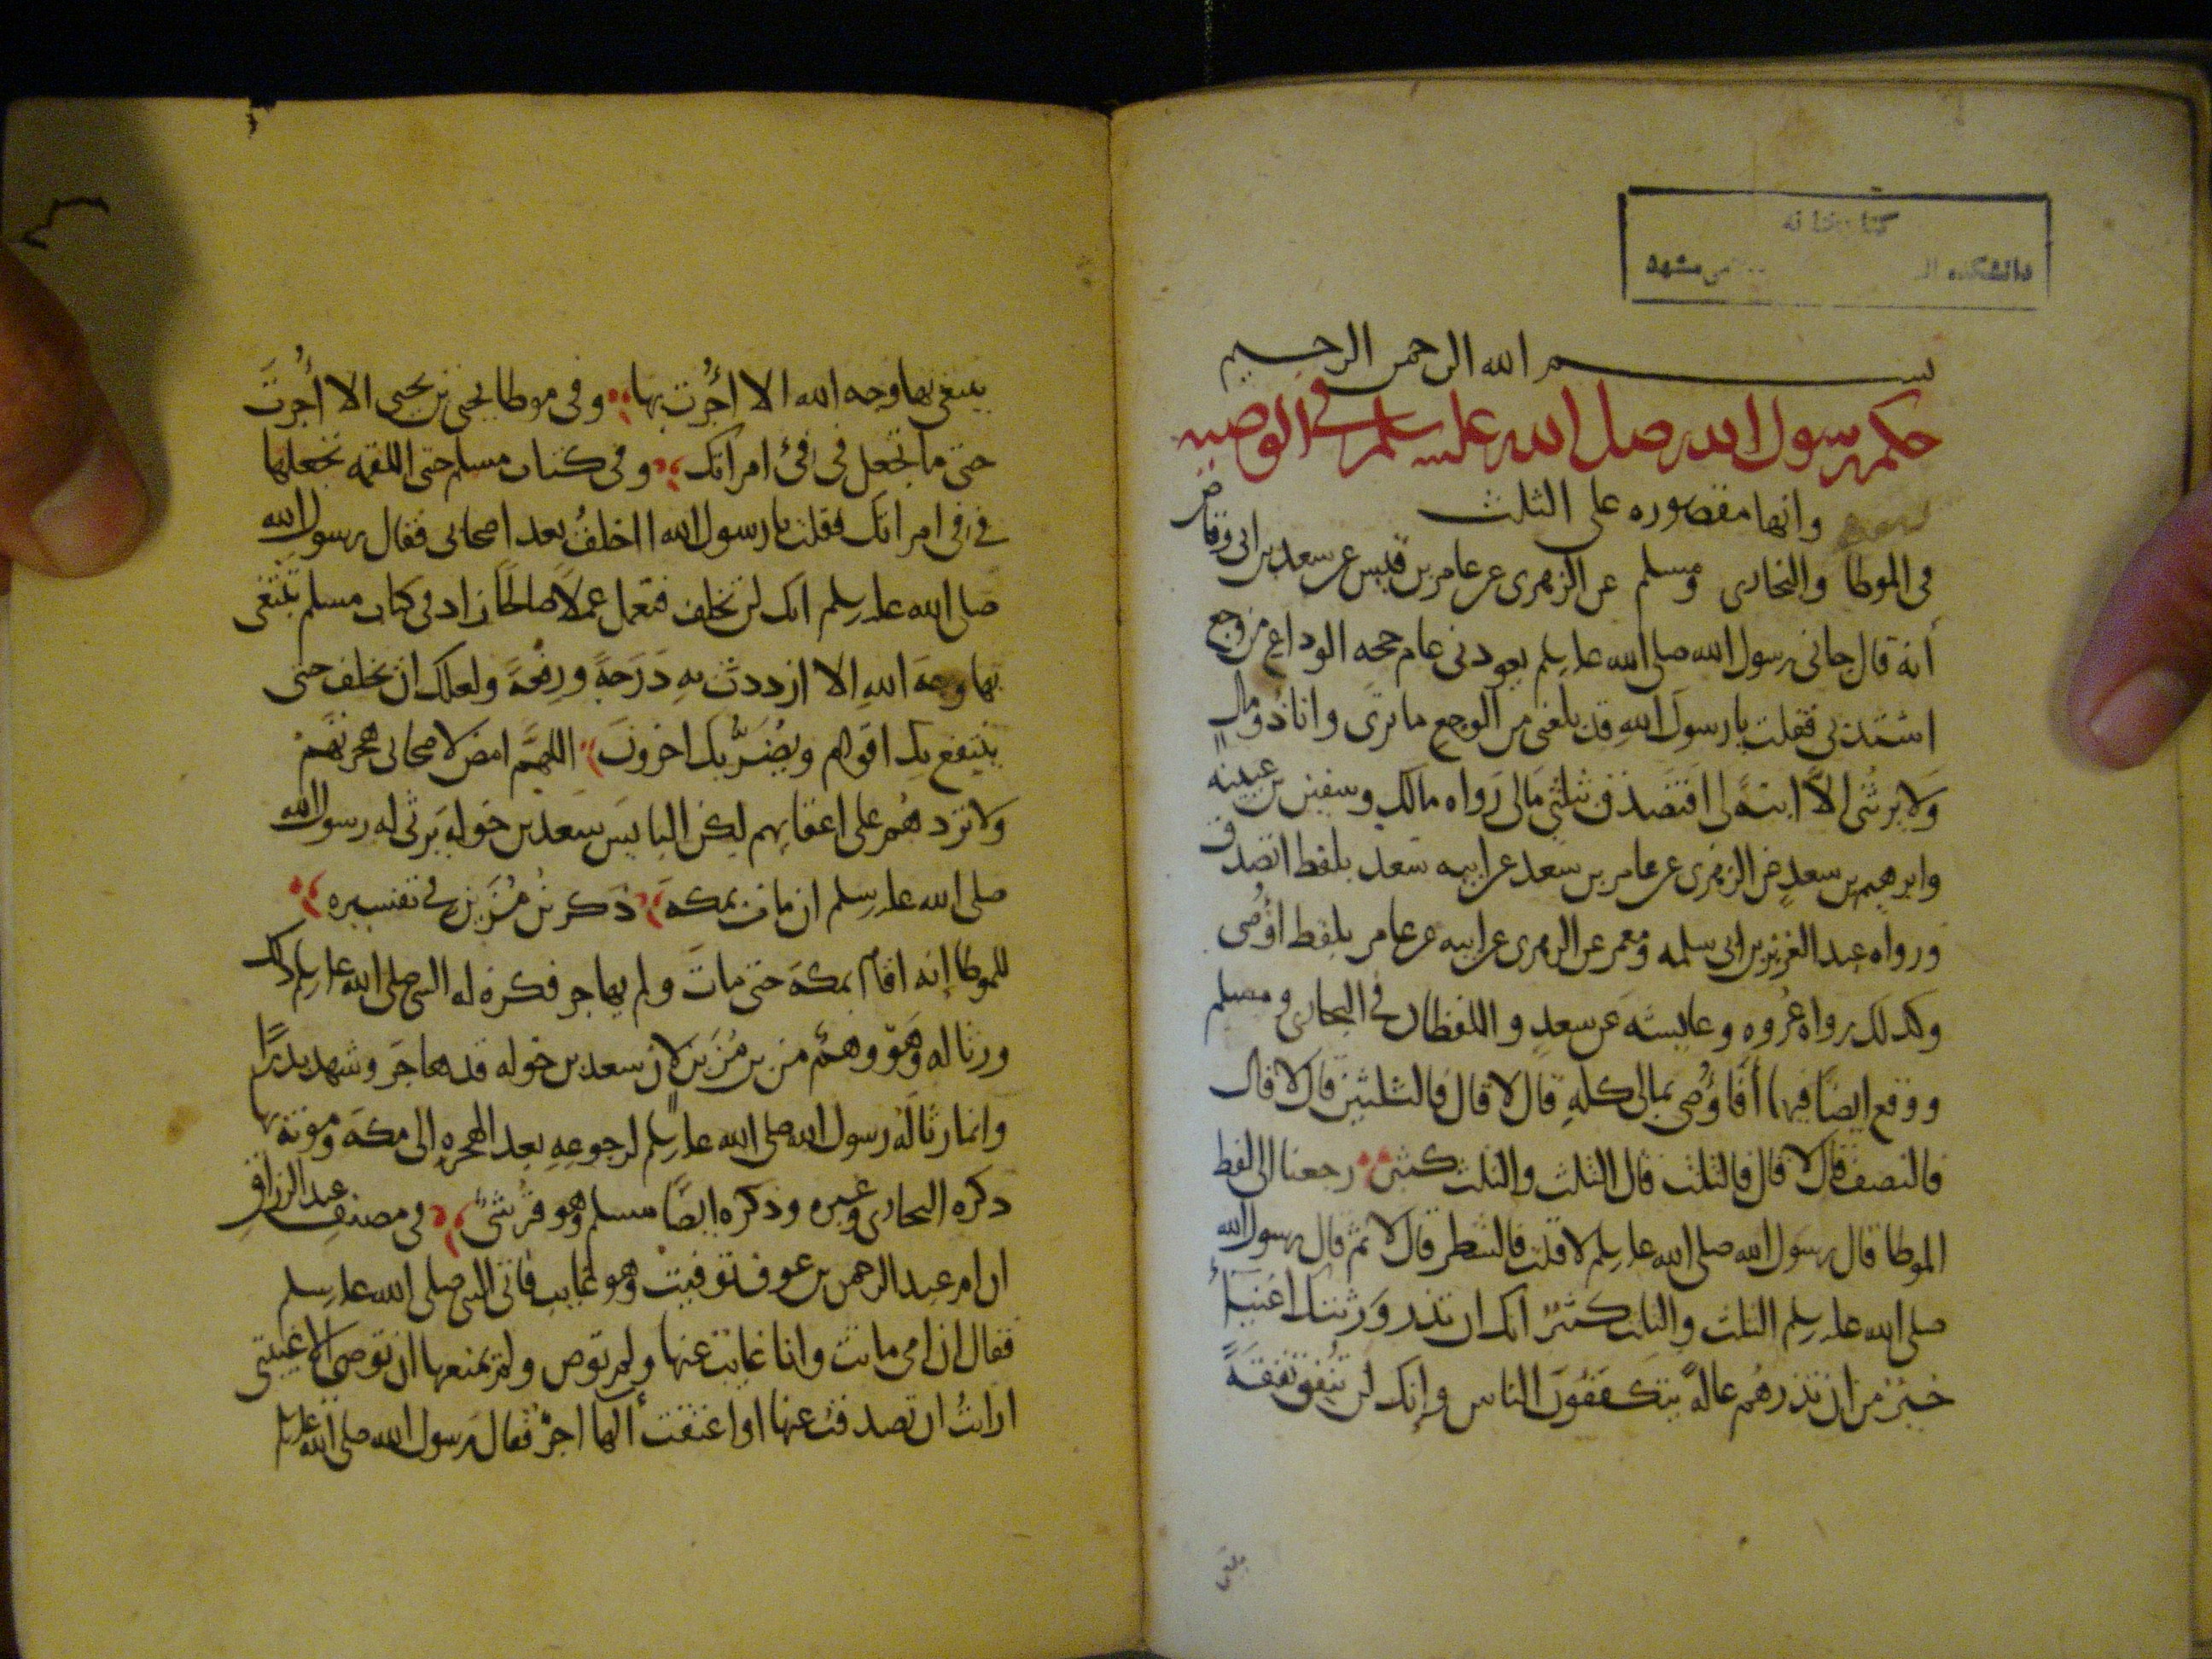 كتابخانه
دانشكده ال مشهد
بسم الله الرحمن الرحيم
حكم رسول الله صلى الله عليه وسلم في الوصية
وانها مقصوره على الثلث
في الموطا والبخارى ومسلم عن الزهرى عن عامر بن قيس عن سعد بن ابى وقاص
أنه قال جانى رسول الله صلى الله عليه وسلم يعودنى عام حجه الوداع من وجع
اشتد بى فقلت يا رسول الله قد بلغنى من الوجع ما ترى وانا ذو مال
ولا يرثنى الا ابنة لى افتصدق بثلثى مالى رواه مالك وسفين بن عيينه
وابرهيم بن سعد عن الزهرى عن عامر بن سعد عن ابيه سعد بلفظ اتصدق
ورواه عبد العزيز بن ابى سلمه ومعمر عن الزهرى عن ابيه عن عامر بلفظ اوصى
وكذلك رواه عروه وعايشه عن سعد واللفظان في البخارى ومسلم
ووقع ايضا فيها أفاوصى بمالى كله قال لا قال فالثلثين قال لا قال
فالنصف قال لا قال فالثلث قال الثلث والثلث كثير رجعنا الى لفظ
الموطا قال رسول الله صلى الله عليه وسلم لا قلت فالشطر قال لا ثم قال رسول الله
صلى الله عليه وسلم الثلث والثلث كثير انك ان تذر ورثتك اغنياء
خير من ان تذرهم عالة يتكففون الناس وإنك لن تنفق نفقة
يبتغى بها وجه الله الا اجرت بها وفى موطا يحيى بن يحيى الا اجرت
حتى ما تجعل فى فى امراتك وفى كتاب مسلم حتى اللقمه تجعلها
في فى امراتك فقلت يا رسول الله ااخلف بعد اصحابى فقال رسول الله
صلى الله عليه وسلم انك لن تخلف فتعمل عملا صالحا زاد فى كتاب مسلم تبتغى
بها وجه الله الا ازددت به درجة ورفعة ولعلك ان تخلف حتى
ينتفع بك اقوام ويضر بك اخرون اللهم امض لاصحابى هجرتهم
ولا تردهم على اعقابهم لكن البايس سعد بن خوله يرثى له رسول الله
صلى الله عليه وسلم ان مات بمكه ذكر بن مزين في تفسيره
للموطا إنه اقام بمكة حتى مات ولم يهاجر فكره له النبى صلى الله عليه وسلم ذلك
ورثا له وهو وهم من بن مزين لان سعد بن خوله قد هاجر وشهد بدرا
وانما رثا له رسول الله صلى الله عليه وسلم لرجوعه بعد الهجره الى مكة وموته بها
ذكره البخارى وغيره وذكره ايضا مسلم وهو قرشى فى مصنف عبد الرزاق
ان ام عبد الرحمن بن عوف توفيت وهو غايب فاتى النبى صلى الله عليه وسلم
فقال ان امى ماتت وانا غايب عنها ولم توص ولم يمنعها ان توصى الا غيبتى
ارايت ان تصدقت عنها او اعتقت ألها اجر فقال رسول الله صلى الله عليه وسلم